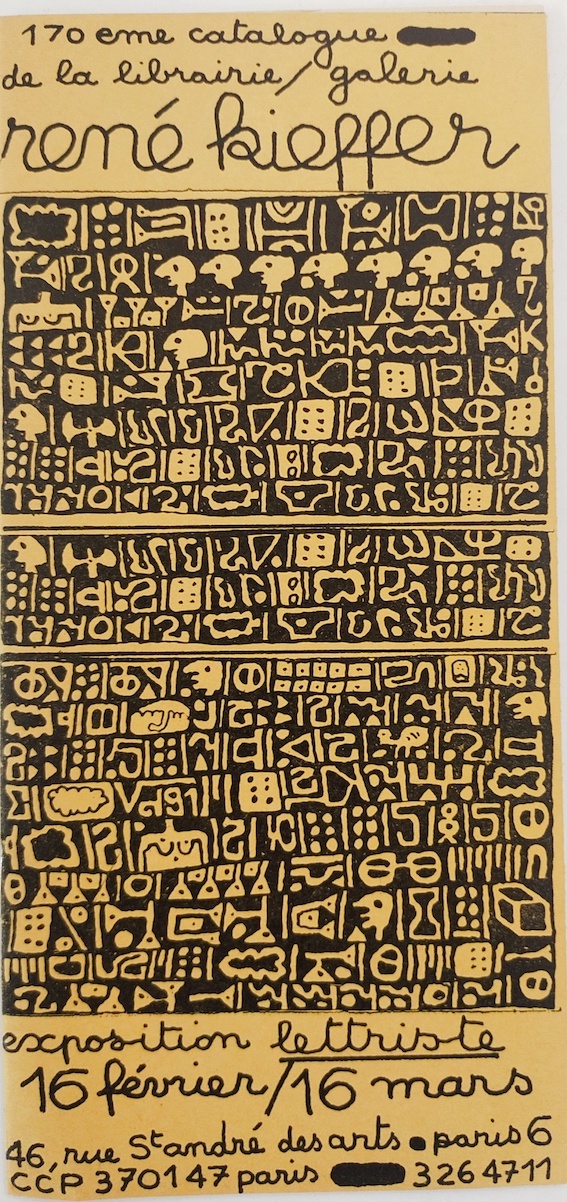 170 eme catalogue
de la librairie/galerie
rené kieffer
exposition lettriste
16 février/16 mars
46, rue St andré des arts • paris 6
CCP 3701 47 paris 326 4711